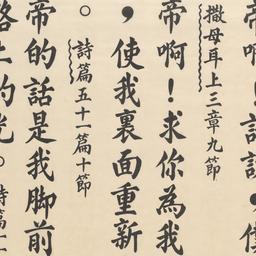 帝啊！請說，僕
撒母耳上三章九節
帝啊！求你為我
，使我裏面重新
。詩篇五十一篇十節
帝的話是我脚前
路上的光。詩篇一一